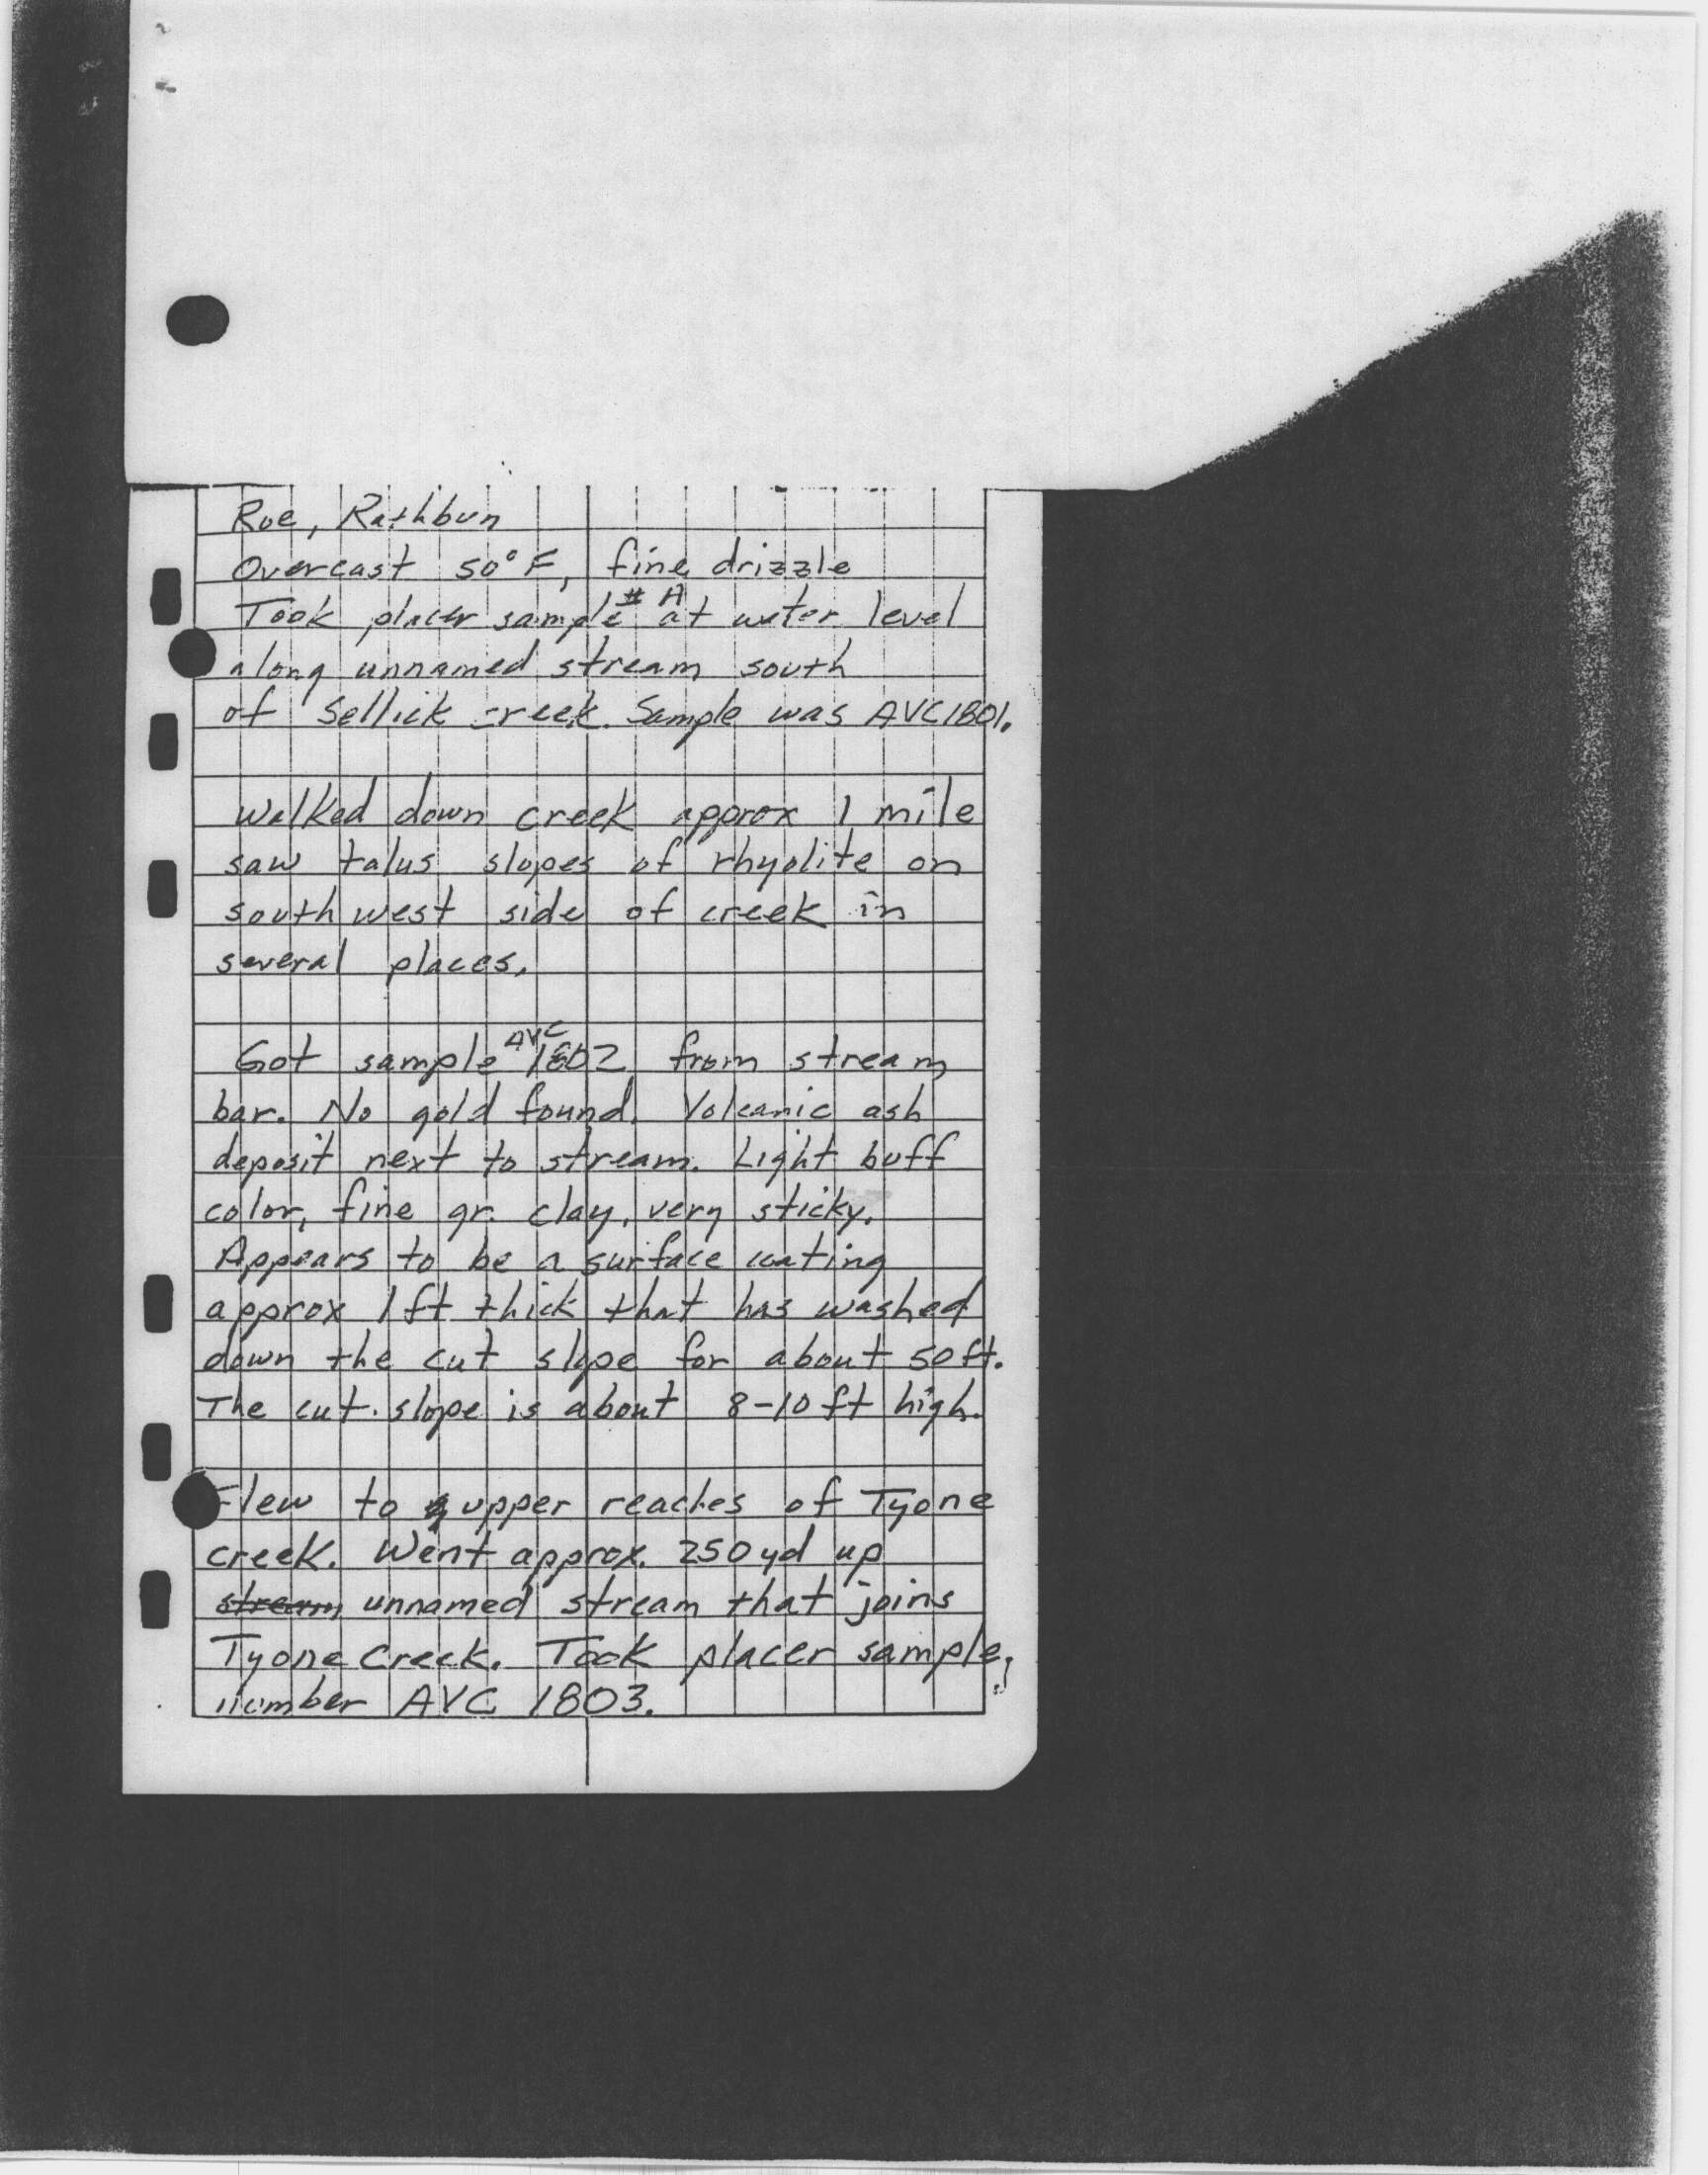 Roe, Rathbun
Overcast 50°F, fine drizzle
Took placer sample # A at water level
along unnamed stream south
of Sellick creek. Sample was AVC1801.
Walked down creek approx 1 mile
saw talus slopes of rhyolite on
southwest side of creek in
several places.
Got sample AVC 1802 from stream
bar. No gold found. Volcanic ash
deposit next to stream. Light buff
color, fine gr. clay, very sticky.
Appears to be a surface coating
approx 1ft thick that has washed
down the cut slope for about 50ft.
The cut slope is about 8-10 ft high.
Flew to upper reaches of Tyone
creek. Went approx. 250yd up
stream unnamed stream that joins
Tyone Creek. Took placer sample,
number AVC 1803.